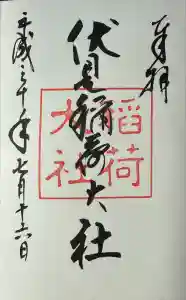 奉拝
伏見稲荷大社
稲荷
大社
平成三十年七月十六日